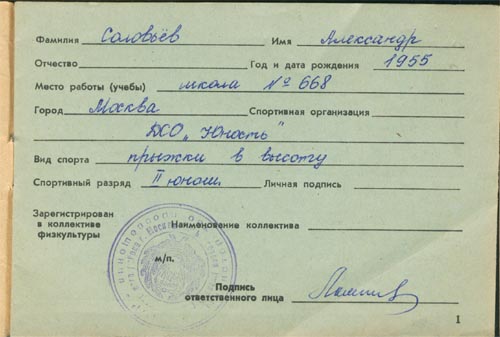 Фамилия Соловьёв Имя Александр
Отчество Год и дата рождения 1955
Место работы (учебы) школа № 668
Город Москва Спортивная организация
ДСО „Юность"
Вид спорта прыжки в высоту
Спортивный разряд II юнош. Личная подпись
Зарегистрирован
в коллективе
физкультуры
Наименование коллектива
м/п.
Подпись
ответственного лица
1